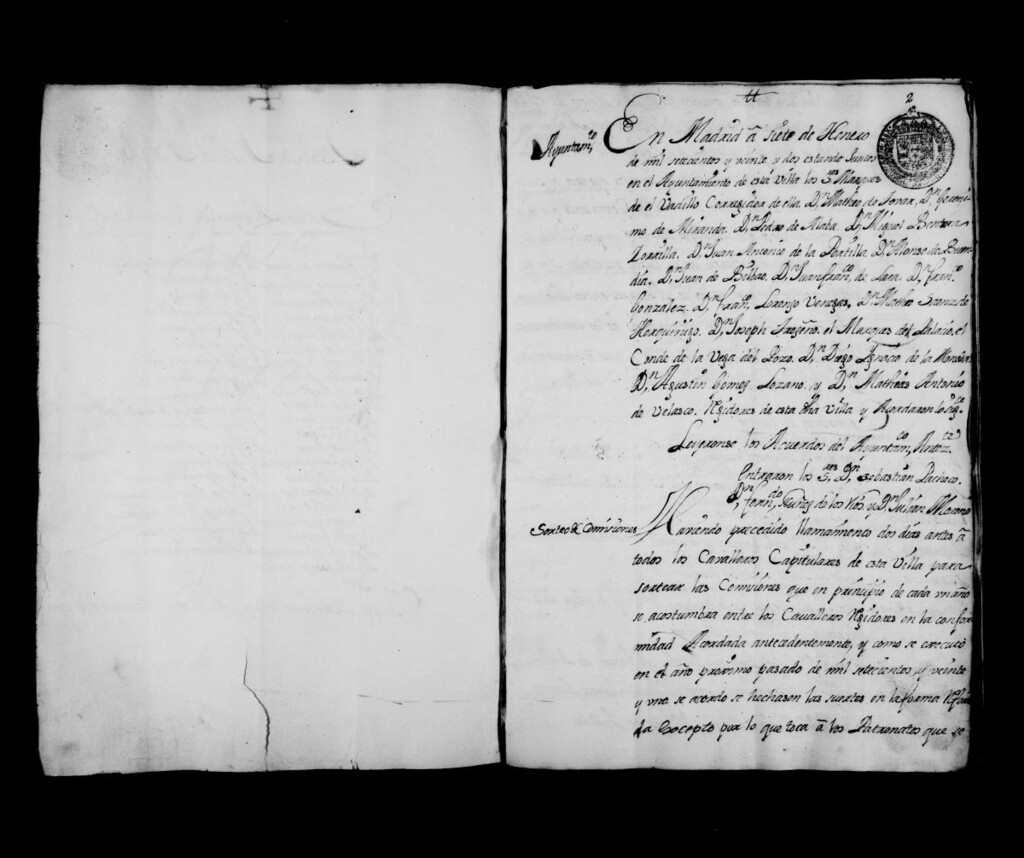 tt
2
Ayuntam.to
En Madrid â siete de Henero
de mil setecientos y veinte y dos estando Juntos
en el Ayuntamiento de esta villa los S.res Marques
de el Vadillo Corregidor de ella. D.n Matheo de Tovar, D.n Geroni-
mo de Miranda. D.n Pedro de Alaba. D.n Miguel
Zorrilla. D.n Juan Antonio de la Portilla. D.n Alonso de Buen-
dia. D.n Juan de Bilbao. D.n Juan fran.co de Lara. D.n fran.co
Gonzalez. D.n fran.co Lorenzo Venegas, D.n Matheo
D.n Joseph el Marques del Palacio, el
Conde de la Vega del Pozo. D.n Diego Ygnacio de la
D.n Agustin Gomez Lozano. y D.n Mathias Antonio
de Velasco. Rejidores de esta dha villa y Acordaron lo sig.te
Leyeronse los Acuerdos del Ayuntam.to Antez.te
Entraron los S.res D.n Sebastian Pacheco.
D.n fern.do Nuñez de los Rios. y D.n Julian Moreno
Sorteo de Comisiones
Haviendo precedido llamamiento dos dias antes â
todos los Cavalleros Capitulares de esta Villa para
sortear las Comisiones que en principio de cada un año
se acostumbra entre los Cavalleros Rejidores en la confor
midad Acordada antecedentemente, y como se executó
en el año proximo pasado de mil setecientos y veinte
y uno se acordo se hechasen las suertes en la forma
da Excepto por lo que toca â los Patronatos que se